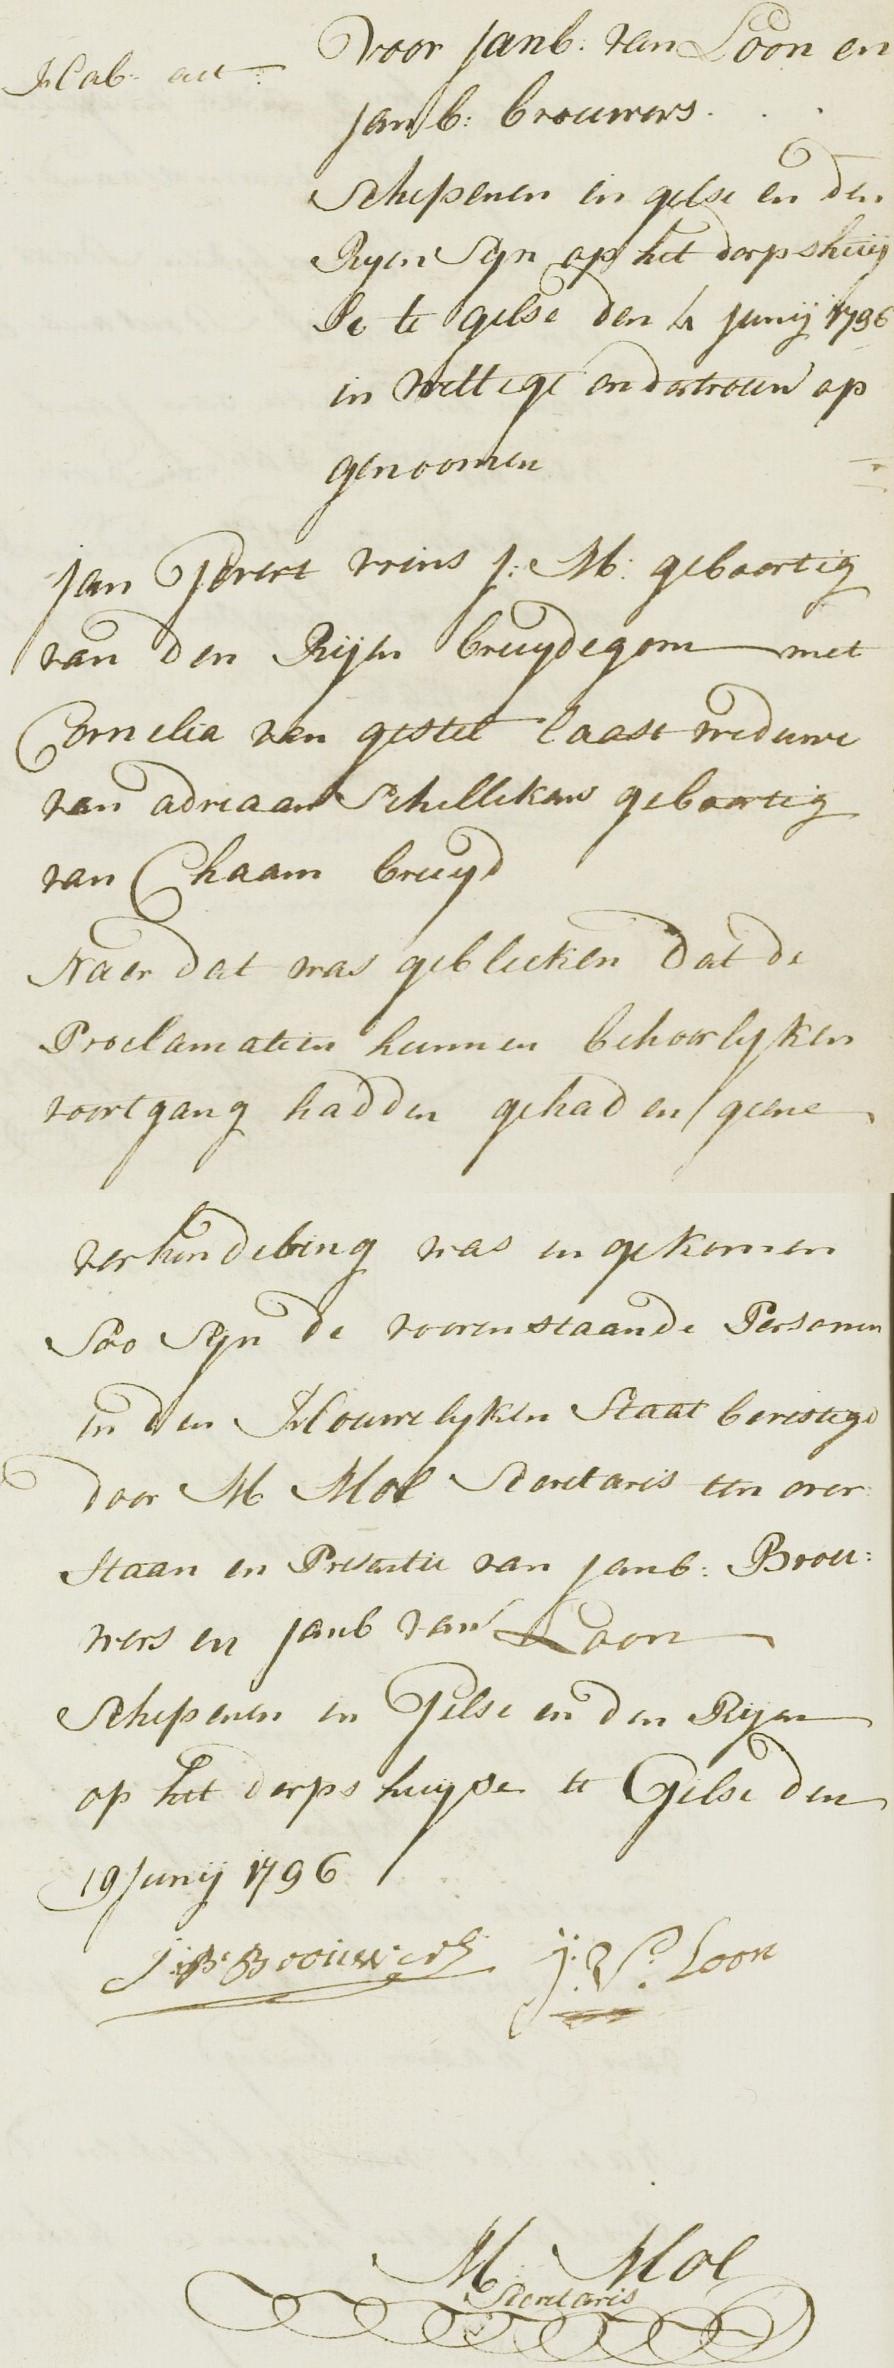 Hab: act:
Voor Janb: van Loon en
Janb: Brouwers . . .
Schepenen in gelse en den
Ryen Syn op het dorpshuij
Se te gelse den 4 Junij 1796
in wettege ondertrouw op
genoomen
Jan Gevert vrins J: M: geboortig
van den Rijen bruydegom met
Cornelia van gestel laast weduwe
van adriaan Schellekens geboortig
van Chaam bruyd
Naer dat was gebleeken dat de
Proclamatien hunnen behoorlyken
voortgang hadden gehad en geene
verhindering was in gekomen
Soo Syn de voorenstaande Personen
in den Houwelyken Staat bevestigd
door M Mol Secretaris ten over
Staan en Presentie van Janb: Brou:
wers en Janb van Loon
Schepenen in Gilse en den Rijen
op het dorps huyse te Gilse den
19 Junij 1796
J: B: Broüwers J: V: Loon
M: Mol
Secretaris